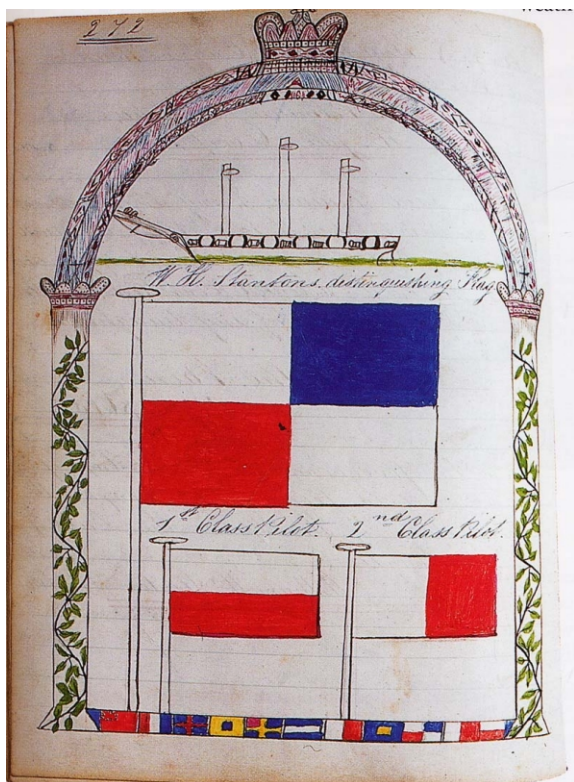 272
W. H. Stantons distinguishing Flag
1st Class Pilot. 2nd Class Pilot.